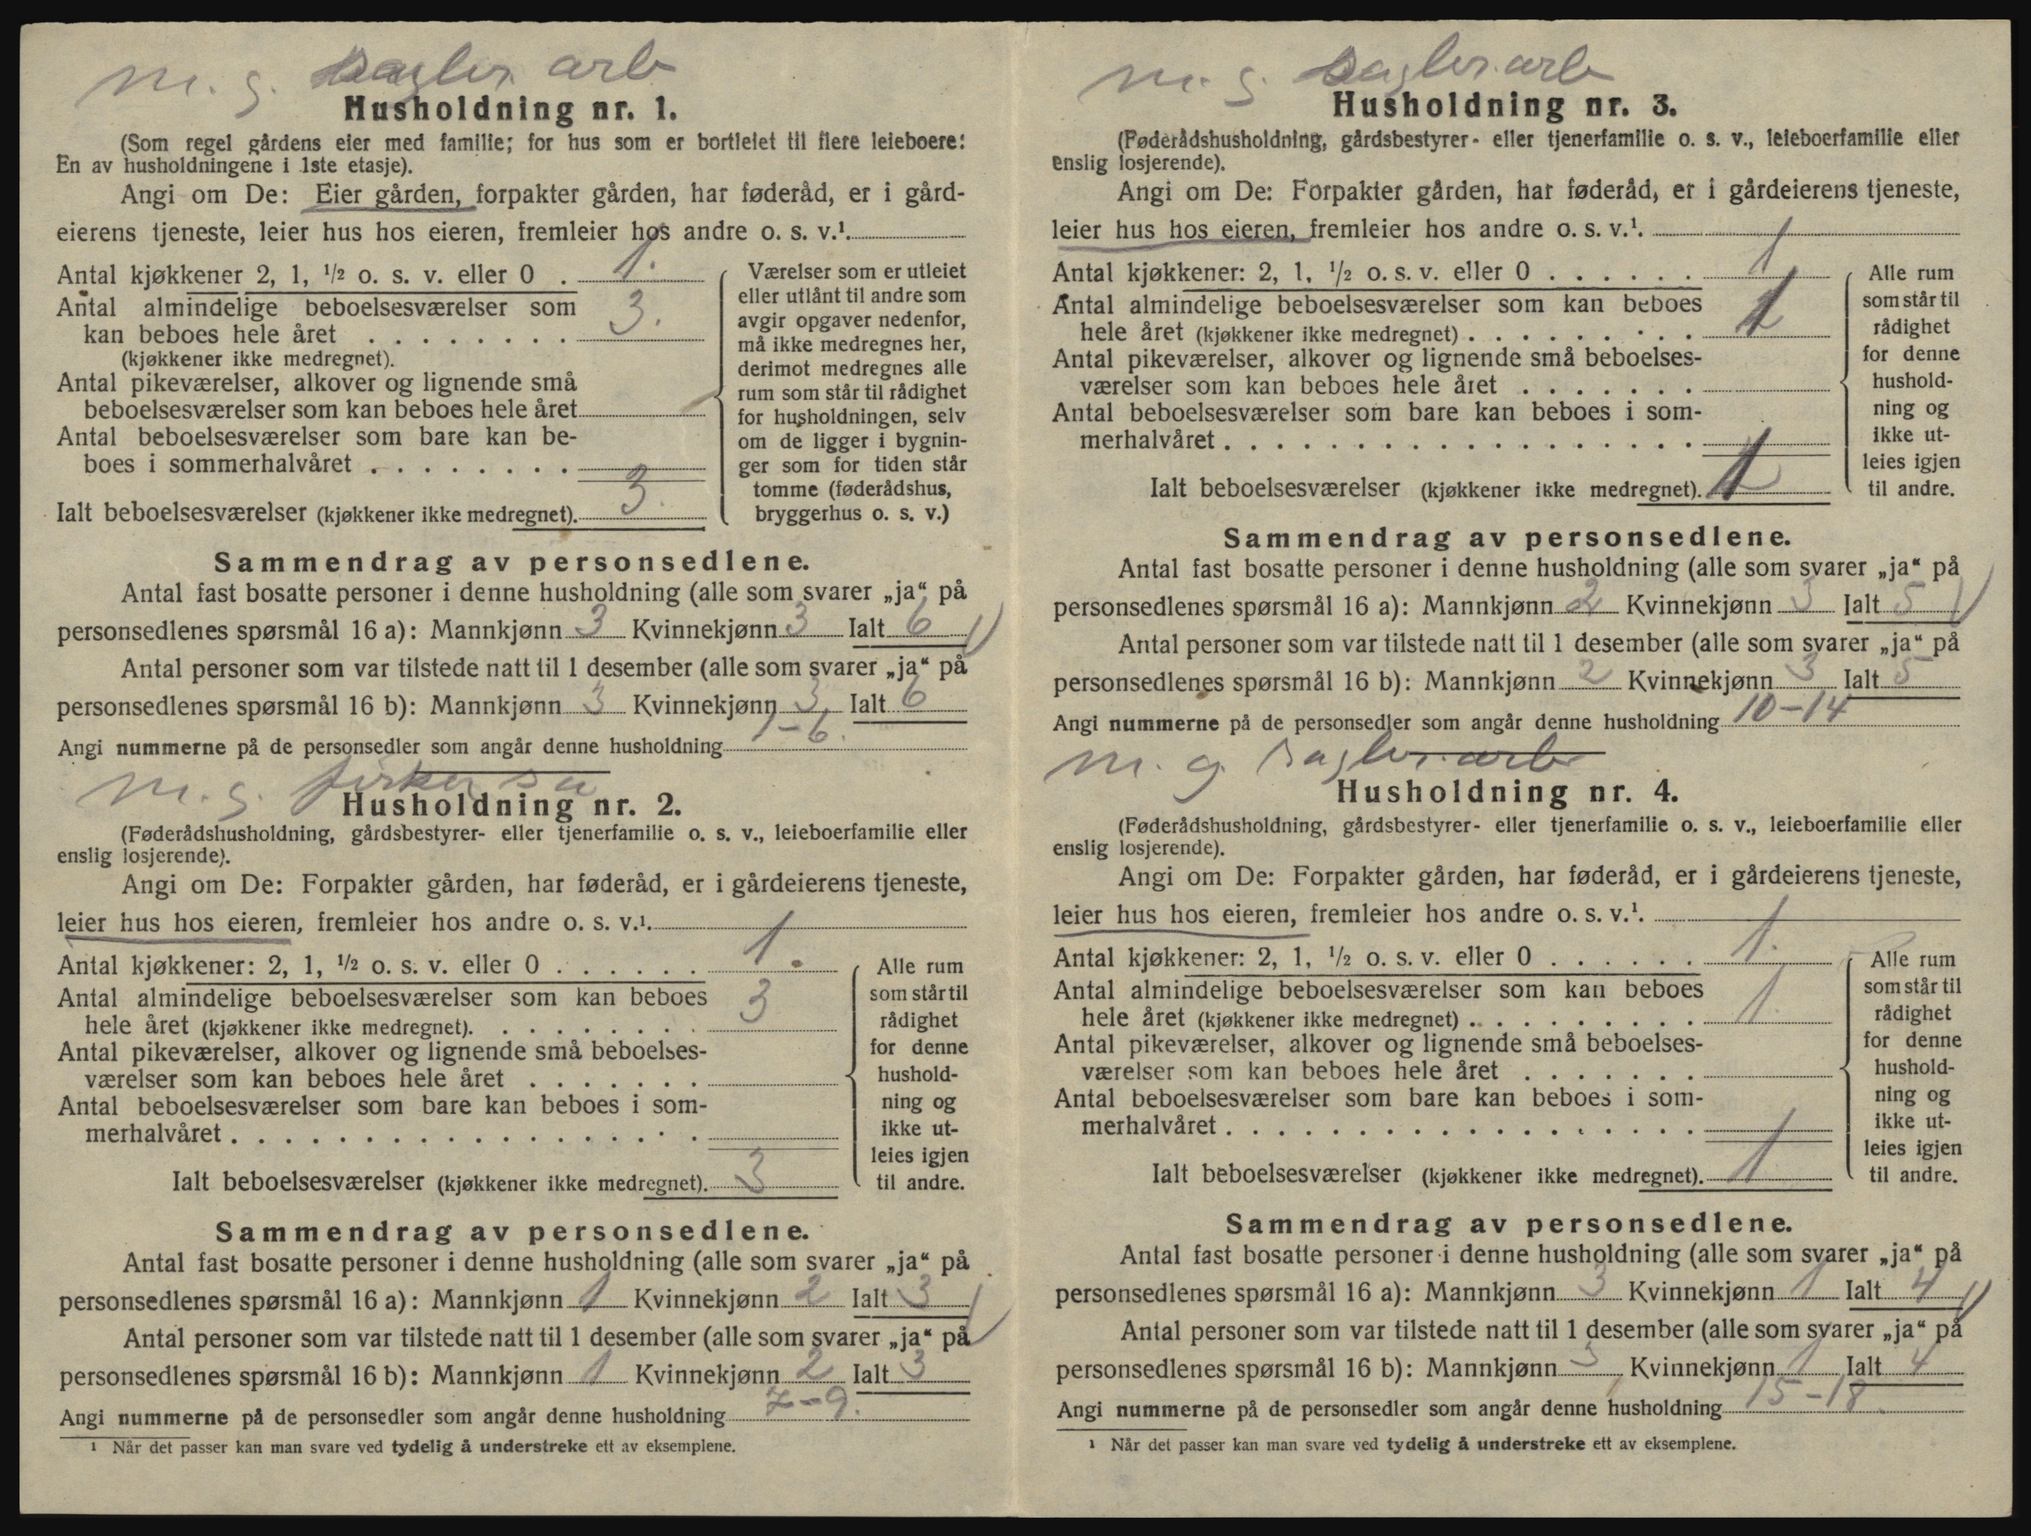 m. g. Dagler. arb
Husholdning nr. 1.
(Som regel gårdens eier med familie; for hus som er bortleiet til flere leieboere:
En av husholdningene i 1ste etasje).
Angi om De: Eier gården, forpakter gården, har føderåd, er i gård-
eierens tjeneste, leier hus hos eieren, fremleier hos andre o. s. v.¹.
Antal kjøkkener 2, 1, ½ o. s. v. eller 0 . 1.
Antal almindelige beboelsesværelser som
kan beboes hele året . . . . . . . . . 3.
(kjøkkener ikke medregnet).
Antal pikeværelser, alkover og lignende små
beboelsesværelser som kan beboes hele året
Antal beboelsesværelser som bare kan be-
boes i sommerhalvåret . . . . . . . .
Ialt beboelsesværelser (kjøkkener ikke medregnet). 3.
Værelser som er utleiet
eller utlånt til andre som
avgir opgaver nedenfor,
må ikke medregnes her,
derimot medregnes alle
rum som står til rådighet
for husholdningen, selv
om de ligger i bygnin-
ger som for tiden står
tomme (føderådshus,
bryggerhus o. s. v.)
Sammendrag av personsedlene.
Antal fast bosatte personer i denne husholdning (alle som svarer „ja“ på
personsedlenes spørsmål 16 a): Mannkjønn 3 Kvinnekjønn 3 Ialt 6
Antal personer som var tilstede natt til 1 desember (alle som svarer „ja“ på
personsedlenes spørsmål 16 b): Mannkjønn 3 Kvinnekjønn 3 Ialt 6
Angi nummerne på de personsedler som angår denne husholdning 1-6.
m. g.
Husholdning nr. 2.
(Føderådshusholdning, gårdsbestyrer- eller tjenerfamilie o. s. v., leieboerfamilie eller
enslig losjerende).
Angi om De: Forpakter gården, har føderåd, er i gårdeierens tjeneste,
leier hus hos eieren, fremleier hos andre o. s. v.¹.
Antal kjøkkener: 2, 1, ½ o. s. v. eller 0 . . . . . . 1
Antal almindelige beboelsesværelser som kan beboes
hele året (kjøkkener ikke medregnet). . . . . . . . . 3
Antal pikeværelser, alkover og lignende små beboelses-
værelser som kan beboes hele året . . . . . . .
Antal beboelsesværelser som bare kan beboes i som-
merhalvåret . . . . . . . . . . . . . . . . . .
Ialt beboelsesværelser (kjøkkener ikke medregnet). 3
Alle rum
som står til
rådighet
for denne
hushold-
ning og
ikke ut-
leies igjen
til andre.
Sammendrag av personsedlene.
Antal fast bosatte personer i denne husholdning (alle som svarer „ja“ på
personsedlenes spørsmål 16 a): Mannkjønn 1 Kvinnekjønn 2 Ialt 3
Antal personer som var tilstede natt til 1 desember (alle som svarer „ja“ på
personsedlenes spørsmål 16 b): Mannkjønn 1 Kvinnekjønn 2 Ialt 3
Angi nummerne på de personsedler som angår denne husholdning 7-9.
¹ Når det passer kan man svare ved tydelig å understreke ett av eksemplene.
m. g. Dagler. arb
Husholdning nr. 3.
(Føderådshusholdning, gårdsbestyrer- eller tjenerfamilie o. s. v., leieboerfamilie eller
enslig losjerende).
Angi om De: Forpakter gården, har føderåd, er i gårdeierens tjeneste,
leier hus hos eieren, fremleier hos andre o. s. v.¹.
Antal kjøkkener: 2, 1, ½ o. s. v. eller 0 . . . . . . 1
Antal almindelige beboelsesværelser som kan beboes
hele året (kjøkkener ikke medregnet) . . . . . . . . .
Antal pikeværelser, alkover og lignende små beboelses-
værelser som kan beboes hele året . . . . . . .
Antal beboelsesværelser som bare kan beboes i som-
merhalvåret . . . . . . . . . . . . . . . . . .
Ialt beboelsesværelser (kjøkkener ikke medregnet).
Alle rum
som står til
rådighet
for denne
hushold-
ning og
ikke ut-
leies igjen
til andre.
Sammendrag av personsedlene.
Antal fast bosatte personer i denne husholdning (alle som svarer „ja“ på
personsedlenes spørsmål 16 a): Mannkjønn 2 Kvinnekjønn 3 Ialt 5
Antal personer som var tilstede natt til 1 desember (alle som svarer „ja“ på
personsedlenes spørsmål 16 b): Mannkjønn 2 Kvinnekjønn 3 Ialt 5
Angi nummerne på de personsedler som angår denne husholdning 10-14
m. g. Dagler. arb
Husholdning nr. 4.
(Føderådshusholdning, gårdsbestyrer- eller tjenerfamilie o. s. v., leieboerfamilie eller
enslig losjerende).
Angi om De: Forpakter gården, har føderåd, er i gårdeierens tjeneste,
leier hus hos eieren, fremleier hos andre o. s. v.¹.
Antal kjøkkener: 2, 1, ½ o. s. v. eller 0 . . . . . . 1.
Antal almindelige beboelsesværelser som kan beboes
hele året (kjøkkener ikke medregnet) . . . . . . . . . 1.
Antal pikeværelser, alkover og lignende små beboelses-
værelser som kan beboes hele året . . . . . . .
Antal beboelsesværelser som bare kan beboes i som-
merhalvåret . . . . . . . . . . . . . . . . . .
Ialt beboelsesværelser (kjøkkener ikke medregnet). 1
Alle rum
som står til
rådighet
for denne
hushold-
ning og
ikke ut-
leies igjen
til andre.
Sammendrag av personsedlene.
Antal fast bosatte personer i denne husholdning (alle som svarer „ja“ på
personsedlenes spørsmål 16 a): Mannkjønn 3 Kvinnekjønn 1 Ialt 4
Antal personer som var tilstede natt til 1 desember (alle som svarer „ja“ på
personsedlenes spørsmål 16 b): Mannkjønn 3 Kvinnekjønn 1 Ialt 4
Angi nummerne på de personsedler som angår denne husholdning 15-18.
¹ Når det passer kan man svare ved tydelig å understreke ett av eksemplene.